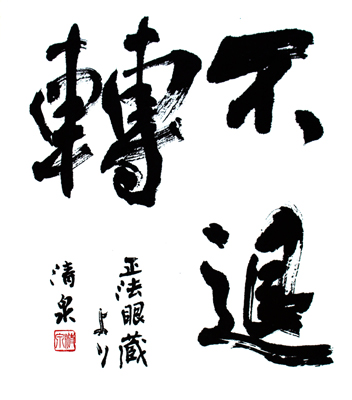 不退
轉
正法眼蔵
より
清泉